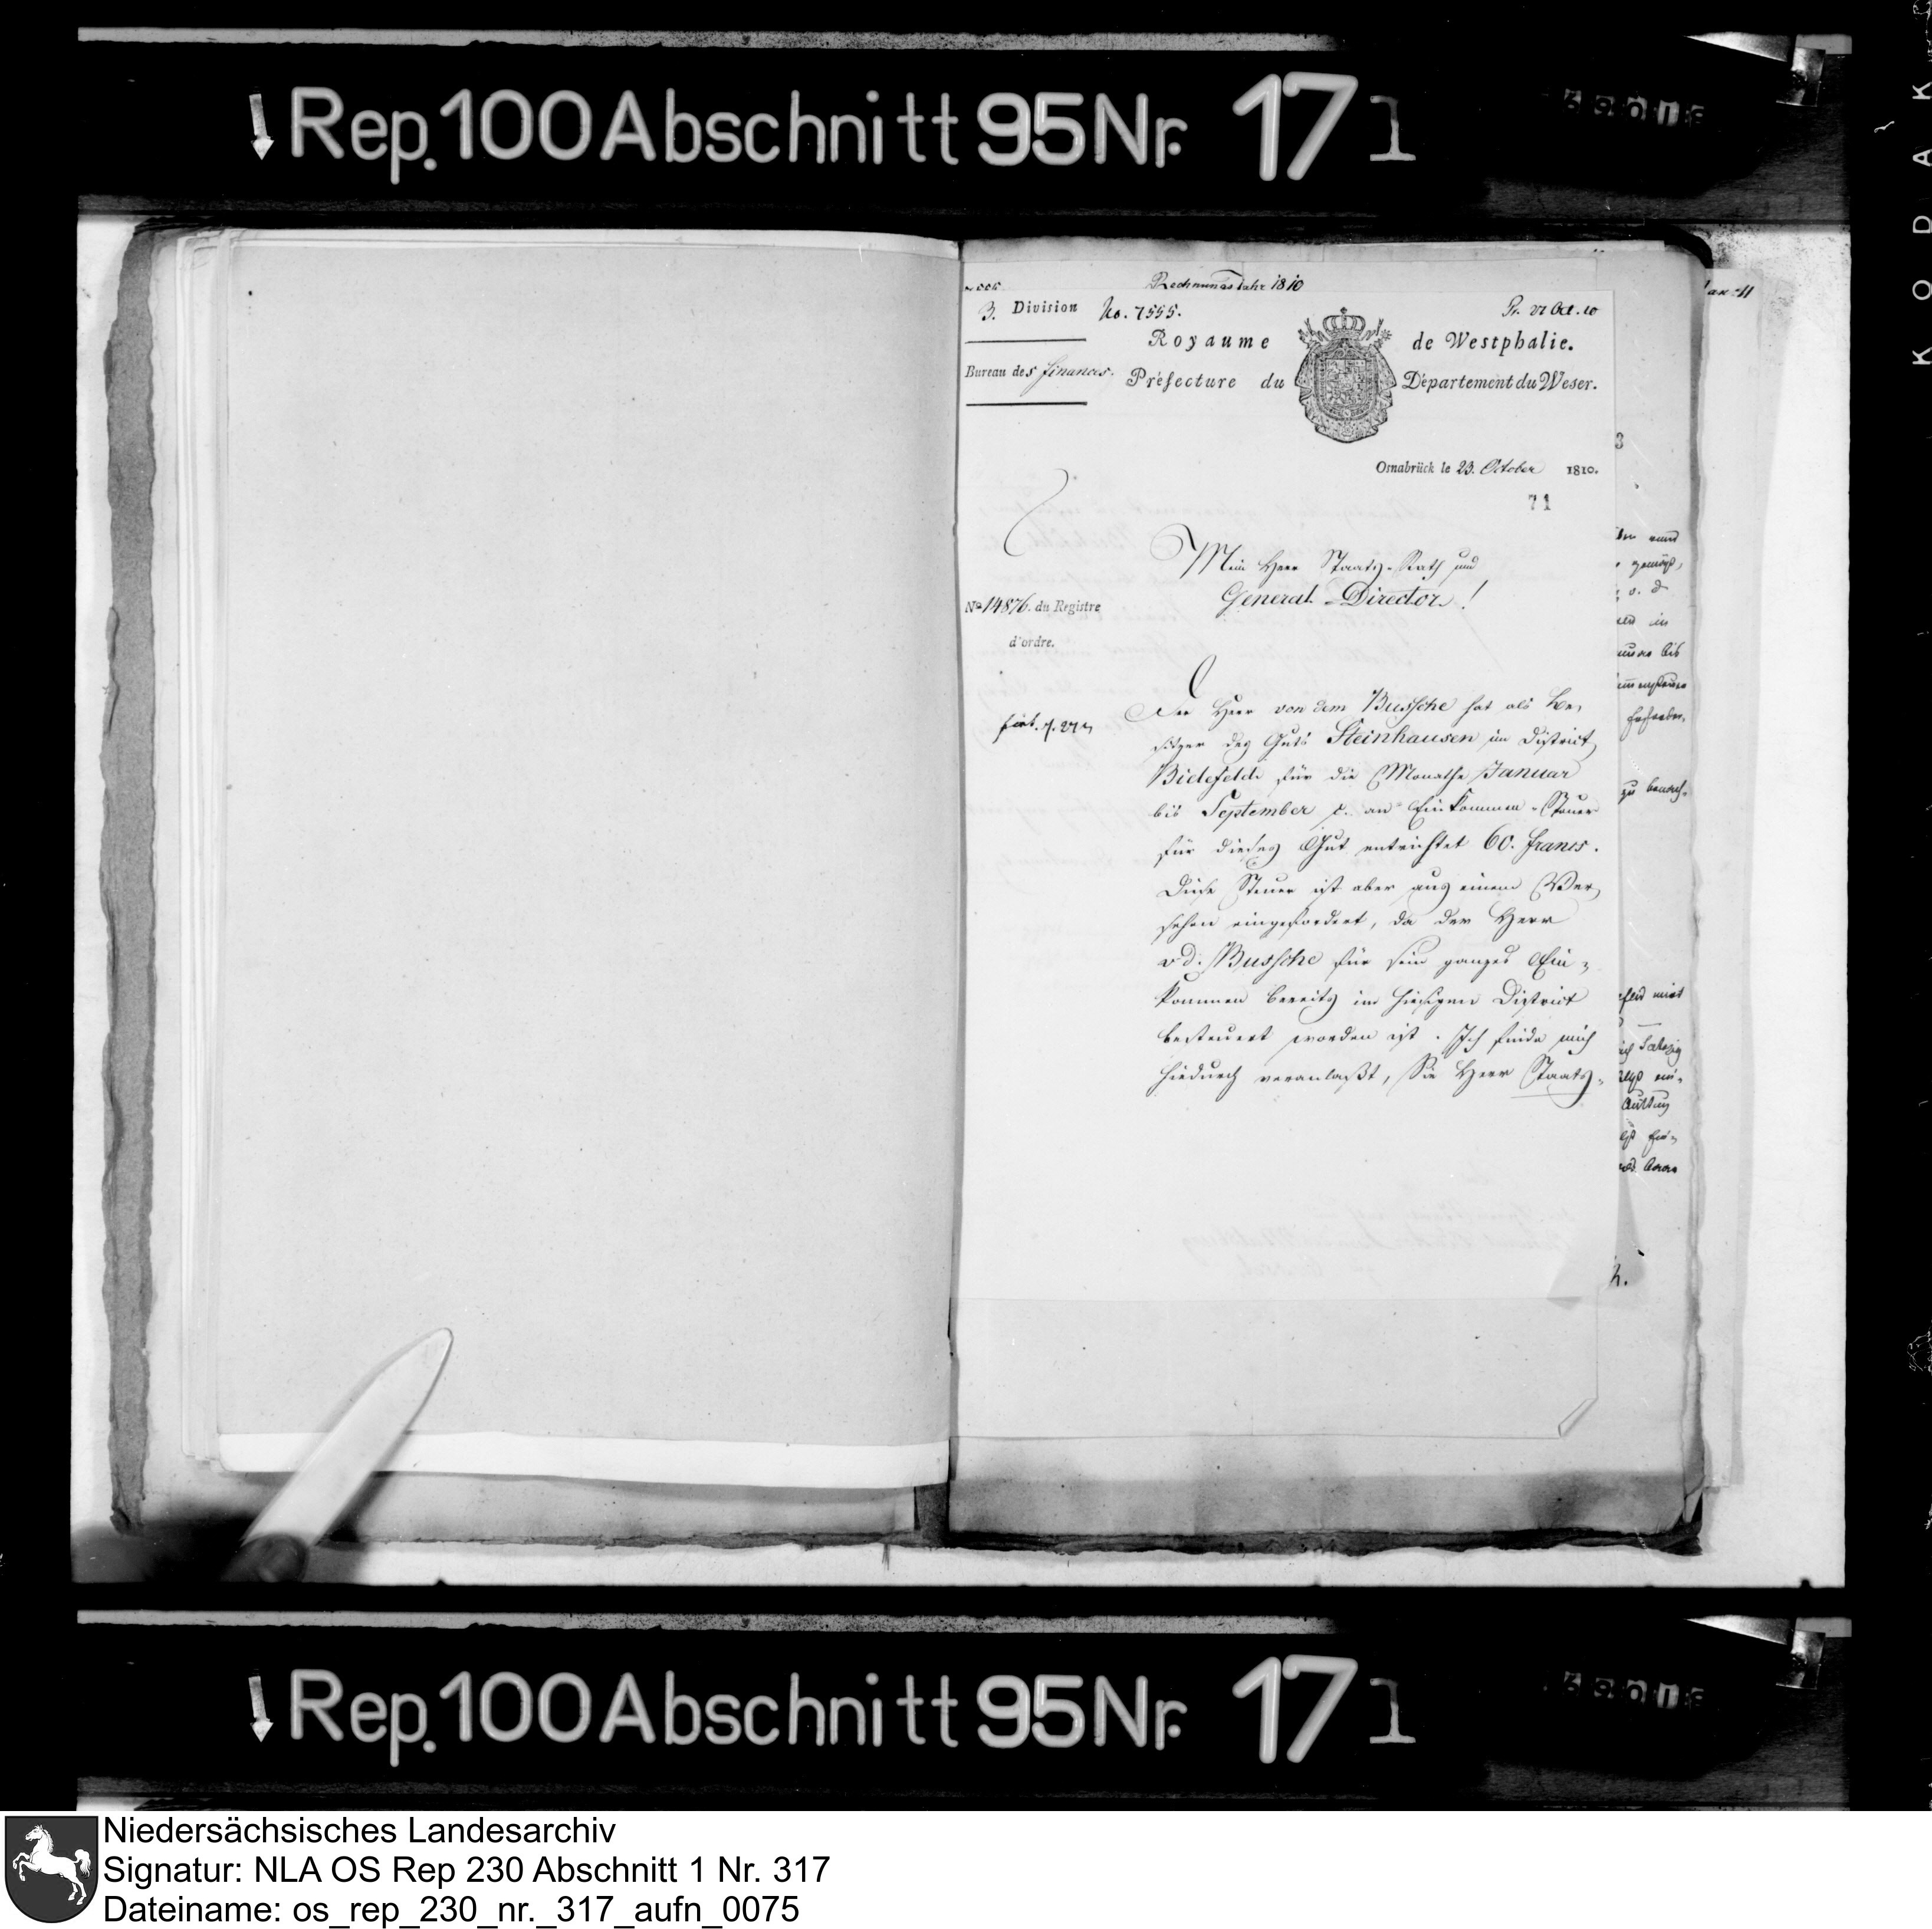 Rep. 100 Abschnitt 95 Nr. 171
KODAK
Rechnungs Jahr 1810
3. Division No. 7555.
Pr. 27 Oct. 10
Royaume de Westphalie.
Bureau des finances.
Préfecture du Département du Weser.
Osnabrück le 23. October 1810.
71
Mein Herr Staats-Rath und
General-Director!
No. 14876. du Registre
d'ordre.
Der Herr von dem Bussche hat als Be,
sitzer des Guts Steinhausen im District
Bielefeld für die Monathe Januar
bis September c. an Einkommen-Steuer
für dieses Gut entrichtet 60. francs.
Diese Steuer ist aber aus einem Ver,
sehen eingefordert, da der Herr
v d. Bussche für sein ganzes Ein-
kommen bereits im hiesigen District
besteuert worden ist. Ich finde mich
hiedurch veranlaßt, Sie Herr Staats-
zu benach-
Rep. 100 Abschnitt 95 Nr. 171
Niedersächsisches Landesarchiv
Signatur: NLA OS Rep 230 Abschnitt 1 Nr. 317
Dateiname: os_rep_230_nr._317_aufn_0075